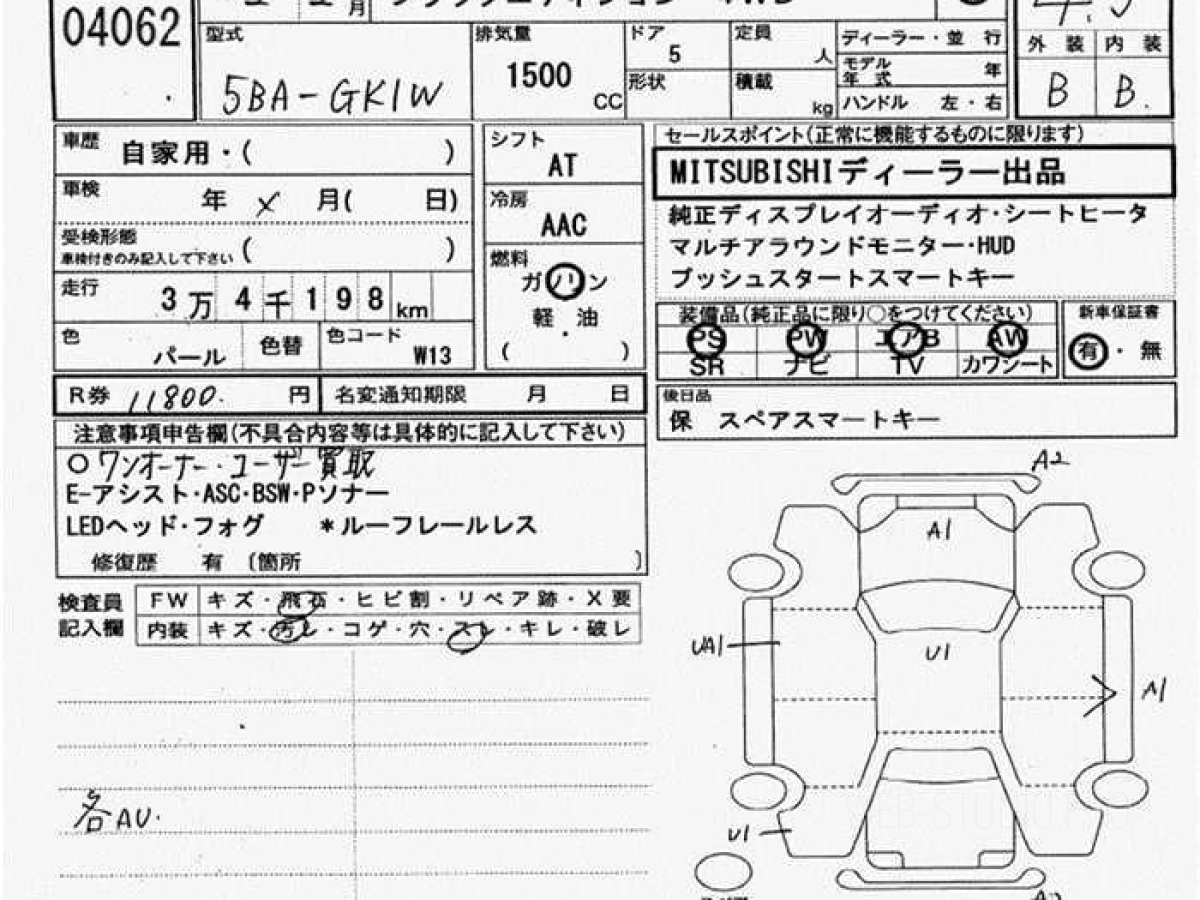 04062
月
型式
5BA-GK1W
排気量
1500
CC
ドア
5
形状
定員
人
積載
kg
ディーラー・並 行
モデル
年 式 年
ハンドル 左・右
外 装 内 装
B B.
車歴
自家用・( )
車検
年 × 月( 日)
受検形態
車検付きのみ記入して下さい ( )
走行
3万4千198km
色
パール
色替
色コード
W13
シフト
AT
冷房
AAC
燃料
ガソリン
軽・油
( )
セールスポイント(正常に機能するものに限ります)
MITSUBISHIディーラー出品
純正ディスプレイオーディオ・シートヒータ
マルチアラウンドモニター・HUD
プッシュスタートスマートキー
装備品(純正品に限り○をつけてください)
PS PW エアB AW
SR ナビ TV カワシート
新車保証書
有・無
R券 11800. 円
名変通知期限 月 日
後日品
保 スペアスマートキー
注意事項申告欄(不具合内容等は具体的に記入して下さい)
○ワンオーナー・ユーザー買取
E-アシスト・ASC・BSW・Pソナー
LEDヘッド・フォグ *ルーフレールレス
修復歴 有 〔箇所 〕
検査員
記入欄
FW キズ・飛石・ヒビ割・リペア跡・X要
内装 キズ・汚レ・コゲ・穴・スレ・キレ・破レ
各AU.
A2
A1
UA1
U1
A1
U1